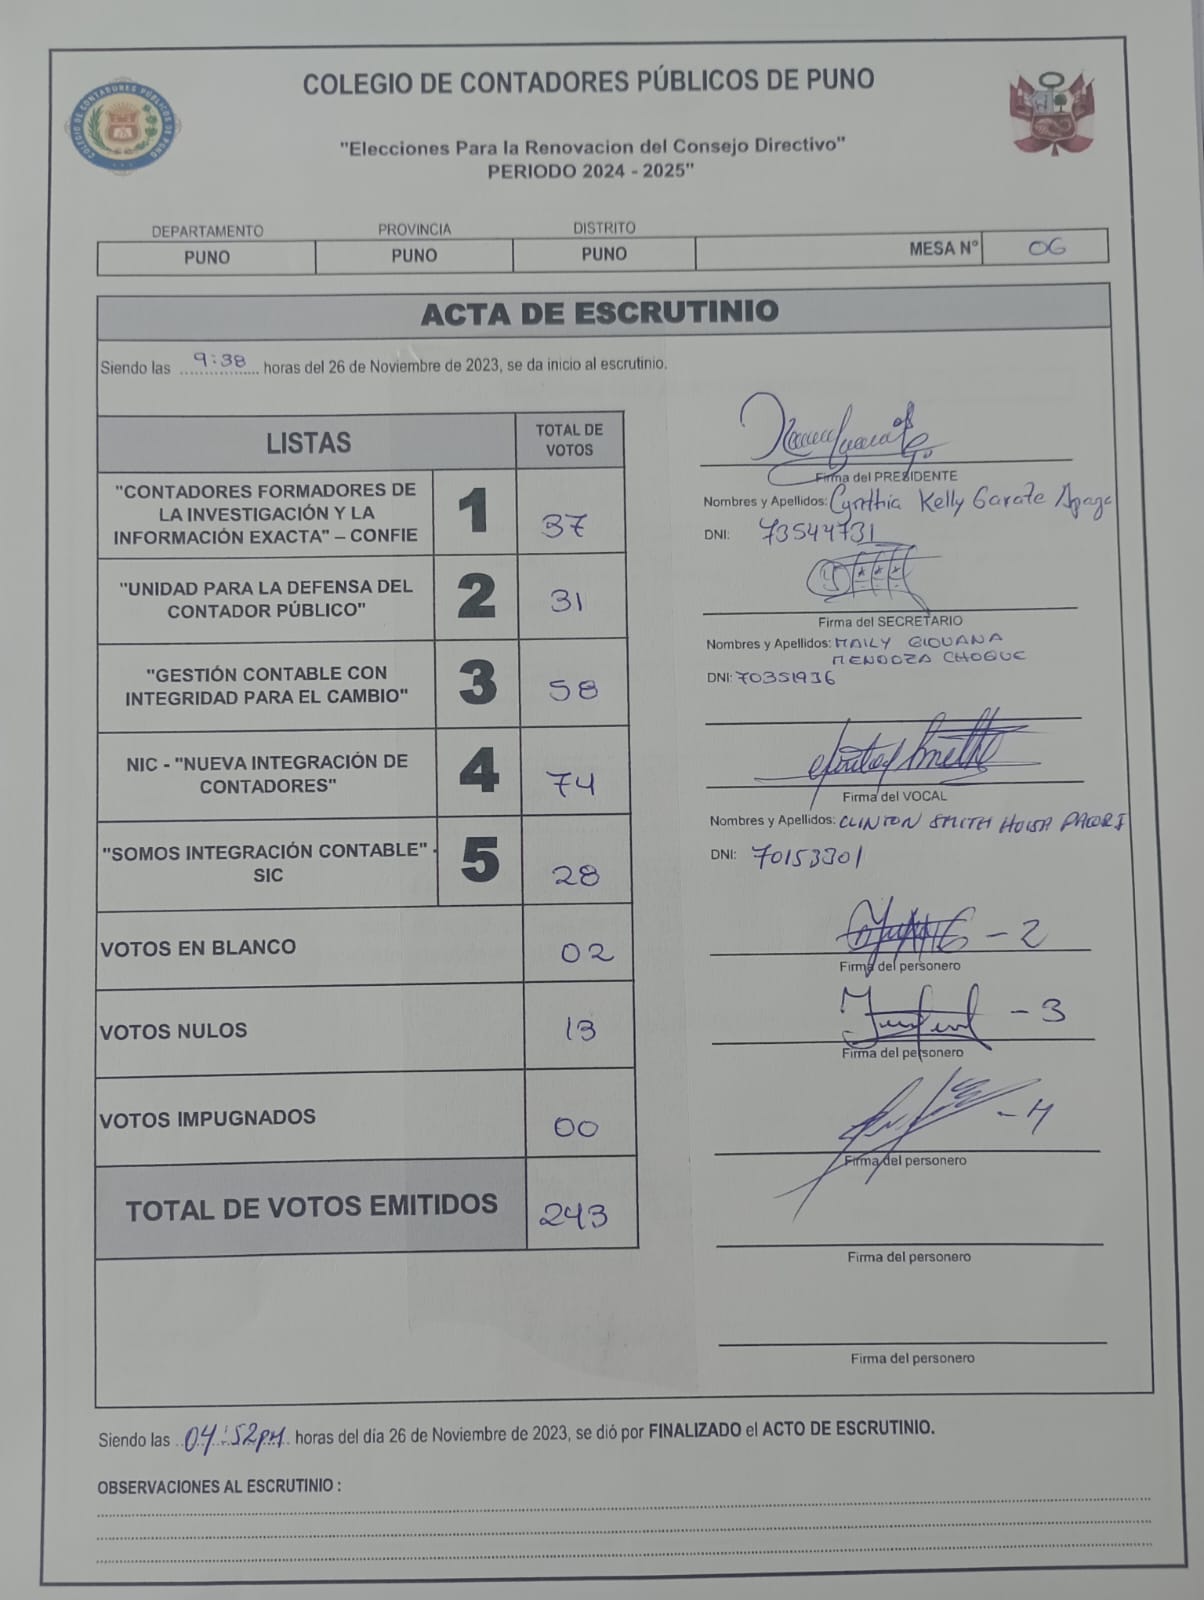 COLEGIO DE CONTADORES PÚBLICOS DE PUNO
COLEGIO DE CONTADORES PÚBLICOS DE PUNO
"Elecciones Para la Renovacion del Consejo Directivo"
PERIODO 2024 - 2025"
DEPARTAMENTO PROVINCIA DISTRITO
PUNO PUNO PUNO MESA N° 06
ACTA DE ESCRUTINIO
Siendo las 9:38 horas del 26 de Noviembre de 2023, se da inicio al escrutinio.
LISTAS TOTAL DE VOTOS
"CONTADORES FORMADORES DE
LA INVESTIGACIÓN Y LA
INFORMACIÓN EXACTA" – CONFIE
1 37
"UNIDAD PARA LA DEFENSA DEL
CONTADOR PÚBLICO"
2 31
"GESTIÓN CONTABLE CON
INTEGRIDAD PARA EL CAMBIO"
3 58
NIC - "NUEVA INTEGRACIÓN DE
CONTADORES"
4 74
"SOMOS INTEGRACIÓN CONTABLE" -
SIC
5 28
VOTOS EN BLANCO 02
VOTOS NULOS 13
VOTOS IMPUGNADOS 00
TOTAL DE VOTOS EMITIDOS 243
Firma del PRESIDENTE
Nombres y Apellidos: Cynthia Kelly Garate Apaza
DNI: 73544731
Firma del SECRETARIO
Nombres y Apellidos: MAILY GIOVANA
MENDOZA CHOQUE
DNI: 70351936
Firma del VOCAL
Nombres y Apellidos: CLINTON SMITH PACORI
DNI: 70153301
- 2
Firma del personero
- 3
Firma del personero
- 4
Firma del personero
Firma del personero
Firma del personero
Siendo las 04:52PM horas del día 26 de Noviembre de 2023, se dió por FINALIZADO el ACTO DE ESCRUTINIO.
OBSERVACIONES AL ESCRUTINIO :